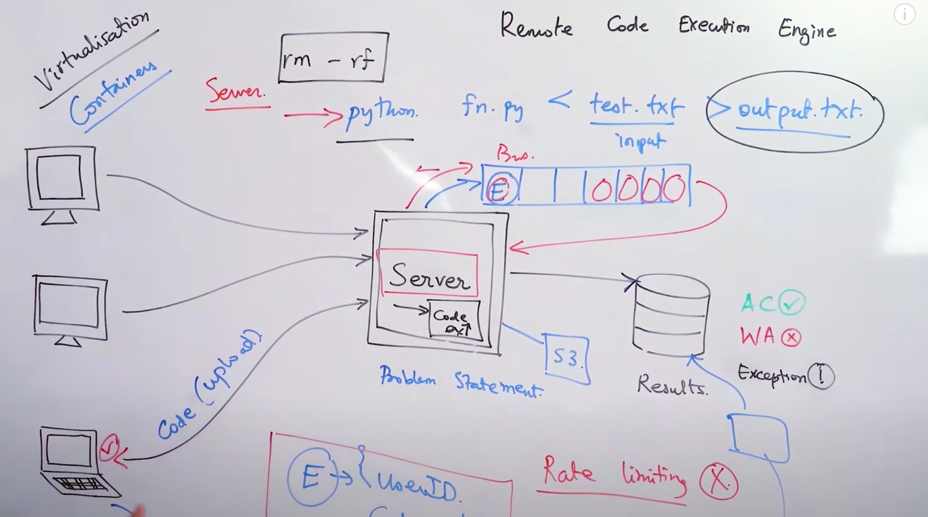 Remote Code Execution Engine
Virtualisation
Containers
rm - rf
Server.
python. fn.py < test.txt > output.txt.
input
Bus.
E
Server
Code
Problem Statement.
S3.
Results.
AC
WA
Exception !
Code (upload)
E
UserID.
Rate limiting X